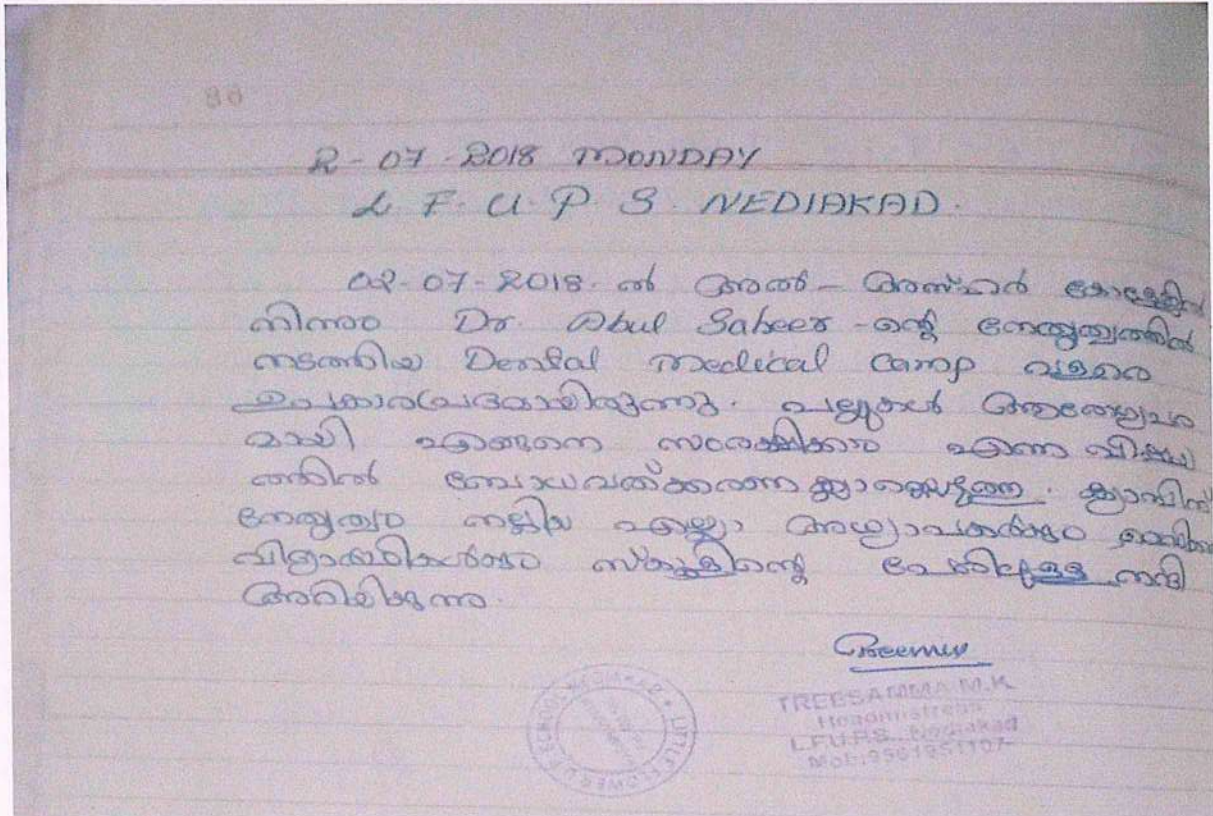 2-07-2018 MONDAY
L.F.U.P.S. NEDIAKAD.
02-07-2018-ൽ അൽ-അസ്ഹർ കോളേജിൽ
നിന്നും Dr. Abul Sabeer-ന്റെ നേതൃത്വത്തിൽ
നടത്തിയ Dental medical camp വളരെ
ഉപകാരപ്രദമായിരുന്നു. പല്ലുകൾ ആരോഗ്യപര
മായി എങ്ങനെ സംരക്ഷിക്കാം എന്ന വിഷയ
ത്തിൽ ബോധവത്ക്കരണ ക്ലാസ്സെടുത്തു. ക്യാമ്പിന്
നേതൃത്വം നല്കിയ എല്ലാ അധ്യാപകർക്കും
വിദ്യാർത്ഥികൾക്കും സ്കൂളിന്റെ പേരിലുള്ള നന്ദി
അറിയിക്കുന്നു.
TREESAMMA M.K
Headmistress
L.F.U.P.S. Nediakad
Mob:9561951107
LITTLE FLOWER U.P. SCHOOL NEDIAKAD